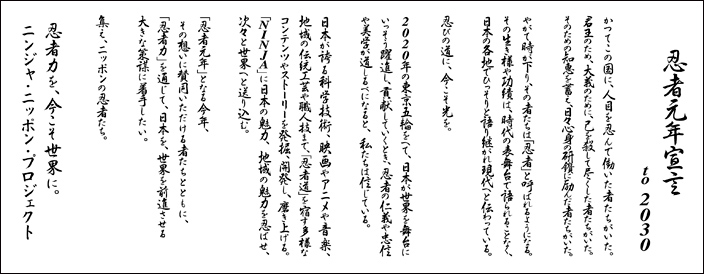 忍者元年宣言
to 2030
かつてこの国に、人目を忍んで働いた者たちがいた。
君主のため、大義のために、己を殺して尽くした者たちがいた。
そのための知恵を蓄え、日々心身の研鑽に励んだ者たちがいた。
やがて時が下り、その者たちは「忍者」と呼ばれるようになる。
その生き様や功績は、時代の表舞台で語られることなく、
日本の各地でひっそりと語り継がれ現代へと伝わっている。
忍びの道に、今こそ光を。
2020年の東京五輪をへて、日本が世界を舞台に
いっそう躍進し、貢献していくとき、忍者の仁義や忠信
や美学が道しるべになると、私たちは信じている。
日本が誇る科学技術、映画やアニメや音楽、
地域の伝統工芸や職人技まで、「忍者道」を宿す多様な
コンテンツやストーリーを発掘、開発し、磨き上げる。
「NINJA」に日本の魅力、地域の魅力を忍ばせ、
次々と世界へと送り込む。
「忍者元年」となる今年、
その想いに賛同いただける者たちとともに、
「忍者力」を通じて、日本を、世界を前進させる
大きな策謀に着手したい。
集え、ニッポンの忍者たち。
忍者力を、今こそ世界に。
ニンジャ・ニッポン・プロジェクト